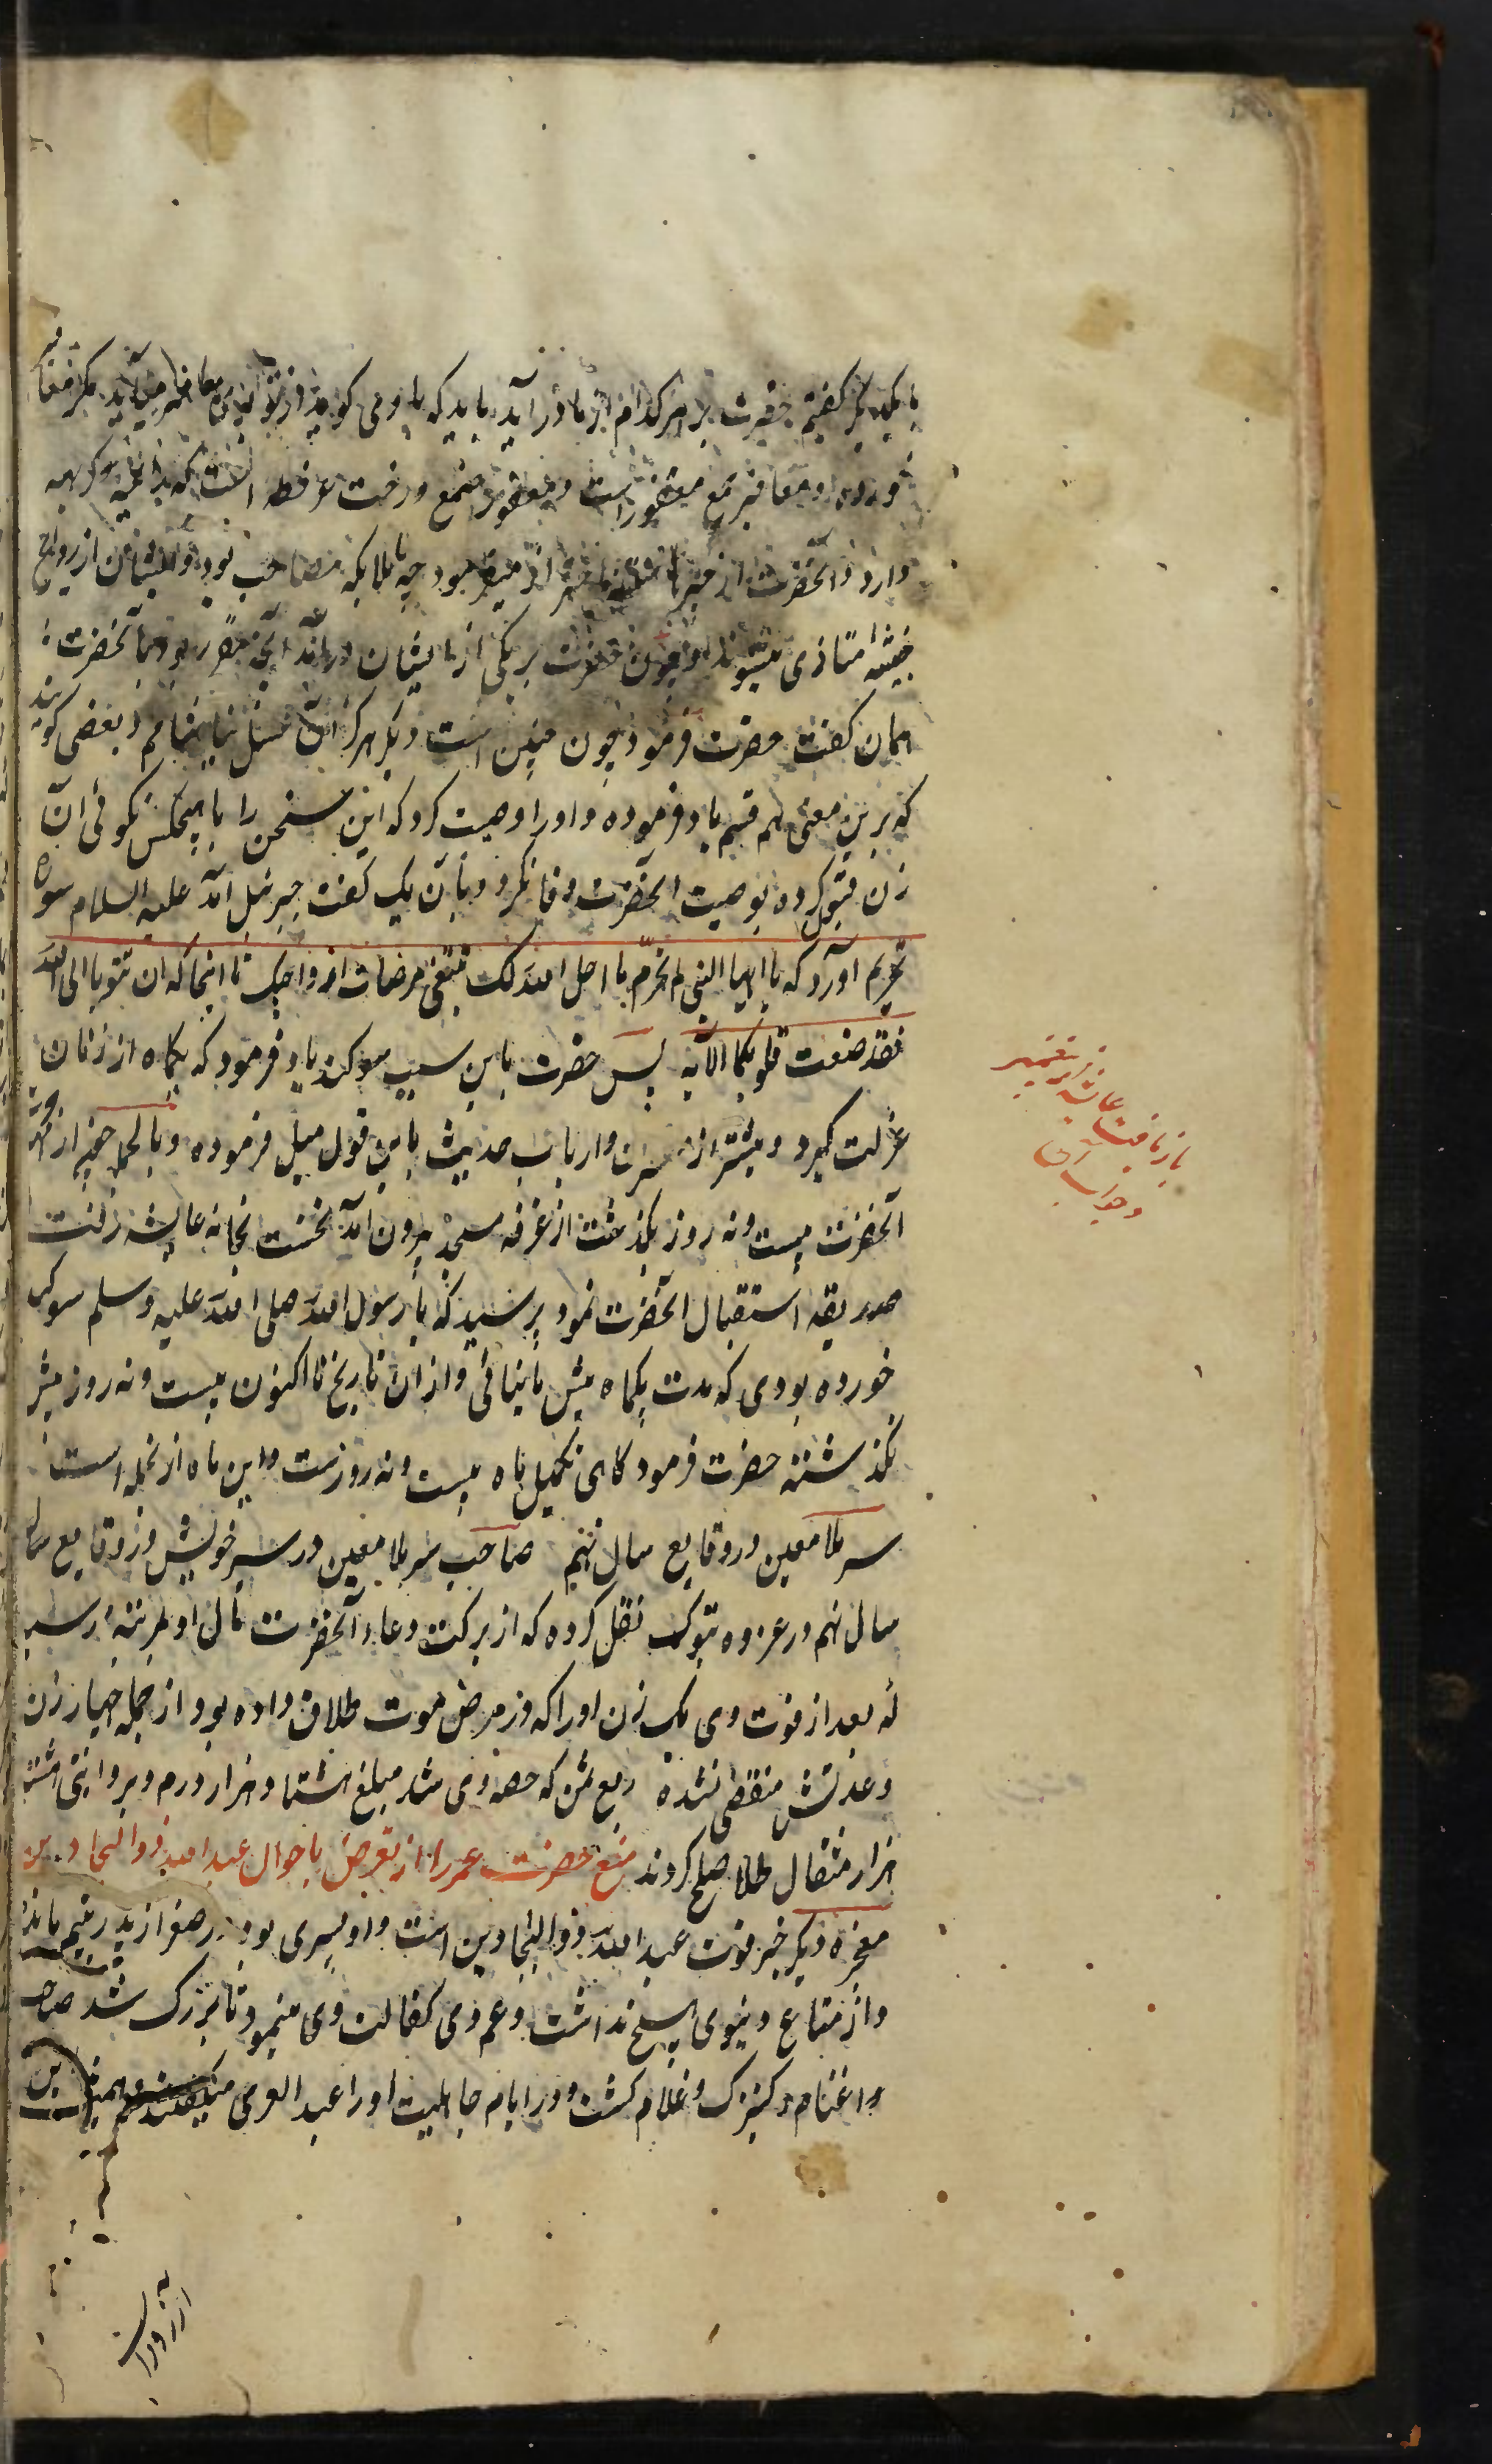 با یکدیگر گفتیم حضرت بر هر کدام از ما در آید باید که با وی گوید از تو بوی مغافیر می‌آید مگر مغافیر
خورده و مغافیر جمع مغفور است و مغفور صمغ درخت عرفطه است که رایحه کریهه
دارد و آنحضرت از چه با ملایکه مصاحب بود و ایشان از روایح
خبیثه متاذی میشوند و چون حضرت بر یکی از ایشان در آمد آنچه مقرر بود با آنحضرت
همان گفت حضرت فرمود چون چنین است دیگر هرگز آن عسل نیاشامم و بعضی گویند
که برین معنی هم قسم یاد فرموده و او را وصیت کرد که این سخن را با هیچکس نگوئی آن
زن قبول کرده بوصیت آنحضرت وفا نکرد و با آن یک گفت جبرئیل آمد علیه السلام سوره
تحریم آورد که یا ایها النبی لم تحرم ما احل الله لک تبتغی مرضات ازواجک تا اینجا که ان تتوبا الی الله
فقد صغت قلوبکما الآیه پس حضرت باین سبب سوگند یاد فرمود که یکماه از زنان
عزلت گیرد و بیشتر از مفسران و ارباب حدیث باین قول میل فرموده و بالجمله چون از هجرت
آنحضرت بیست و نه روز بگذشت از غرفه مسجد بیرون آمد نخست بخانه عایشه رفت
صدیقه استقبال آنحضرت نمود پرسید که یا رسول الله صلی الله علیه وسلم سوگند
خورده بودی که مدت یکماه پیش ما نیائی و از آن تاریخ تا اکنون بیست و نه روز بیشتر
نگذشته حضرت فرمود گاهی تکمیل ماه بیست و نه روزست و این ماه از نجمله است
سیر ملا معین در وقایع سال نهم صاحب سیر ملا معین در سیر خویش در وقایع سال
سال نهم در غزوه تبوک نقل کرده که از برکت دعاء آنحضرت مال او بمرتبهٔ رسید
که بعد از فوت وی یک زن او را که در مرض موت طلاق داده بود از جمله چهار زن
و عدتش منقضی نشده ربع ثمن که حصه وی شد مبلغ هشتاد هزار درم و بروایتی هشتاد
هزار مثقال طلا صلح کردند منع حضرت عمر را از تعرض باحوال عبد الله ذوالبجادین
معجزه دیگر خبر فوت عبد الله ذوالبجادین است و او پسری بود صغر از پدر یتیم مانده
و از متاع دنیوی هیچ نداشت و عم وی کفالت وی مینمود تا بزرگ شد صاحب
و اغنام و کنیزک و غلام گشت و در ایام جاهلیت او را عبد العزی میگفتند
باز یافت عایشه از
و جواب آن